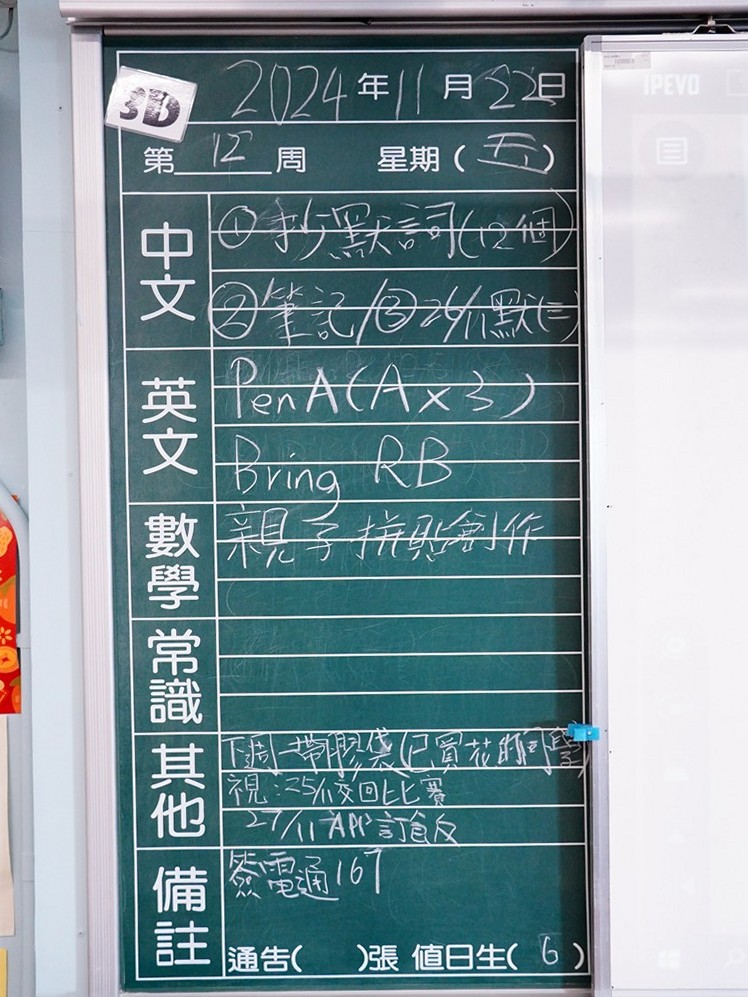 3D
2024年11月22日
IPEVO
第12周 星期(五)
中文
①抄默詞(12個)
②筆記/③26/11默(三)
英文
Pen A(A×3)
Bring RB
數學
親子拼貼創作
常識
其他
下周一帶膠袋(已買花的同學)
視:25/11交回比賽
27/11 APP訂飯
備註
簽電通167
通告( )張 值日生(6)